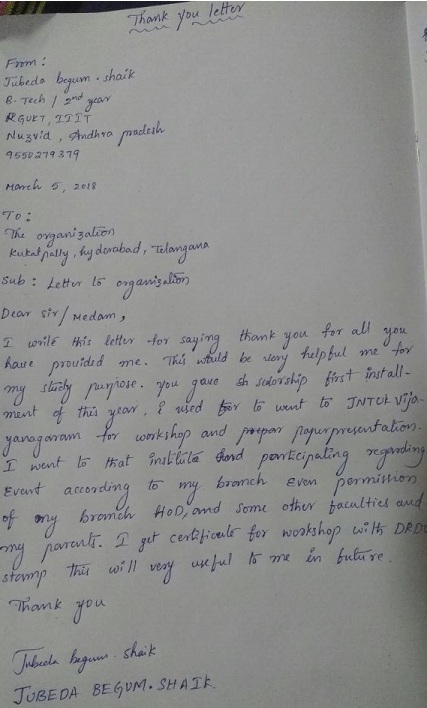 Thank you letter
From :
Jubeda begum . shaik
B. Tech / 2nd year
RGUKT, IIIT
Nuzvid, Andhra pradesh
9550279379
March 5, 2018
To :
The organization
kukatpally, hyderabad, Telangana
Sub : Letter to organization
Dear Sir / Medam,
I write this letter for saying thank you for all you
have provided me. This would be very helpful me for
my study purpose. you gave scolorship first install-
ment of this year. I used for to went to JNTUK Vija-
yanagaram for workshop and paperpresentation.
I went to that institute and participating regarding
Event according to my branch Even permission
of my branch HOD, and some other faculties and
my parents. I get certificate for workshop with DRDO
stamp this will very useful to me in future.
Thank you
Jubeda begum . Shaik
JUBEDA BEGUM . SHAIK